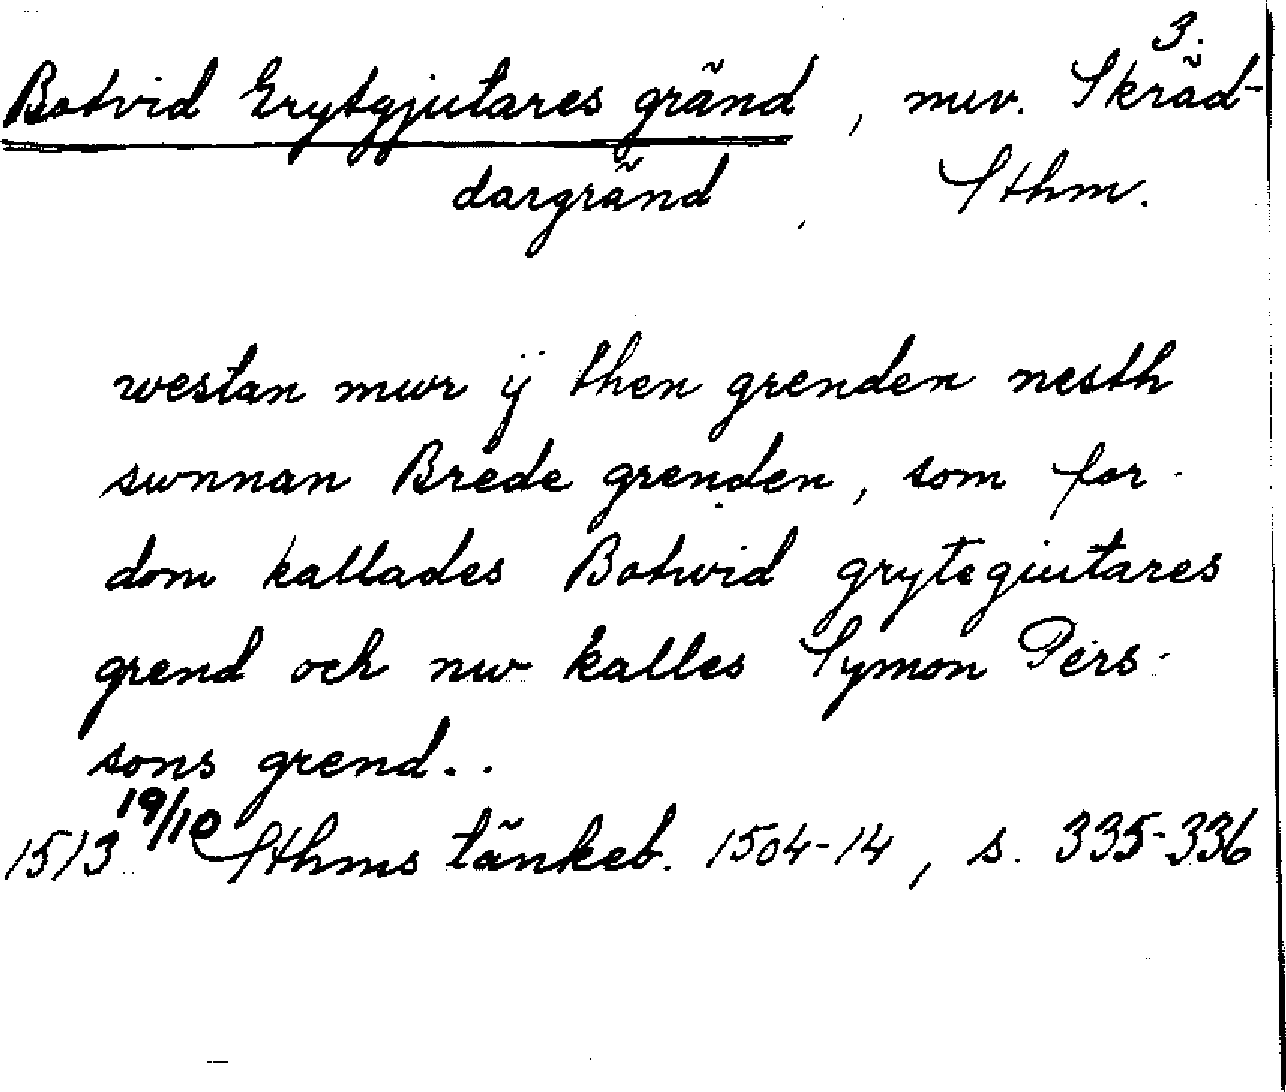 3.
Botvid Grytgjutares gränd, nuv. Skräd-
dargränd, Sthm.
westan mwr ij then grenden nesth
swnnan Brede grenden, som for-
dom kallades Botwid grytegiutares
grend och nw kalles Symon Pers-
sons grend..
1513 19/10 Sthms tänkeb. 1504-14, s. 335-336